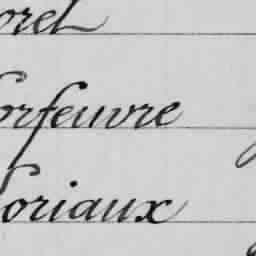 orel
orfeuvre
oriaux